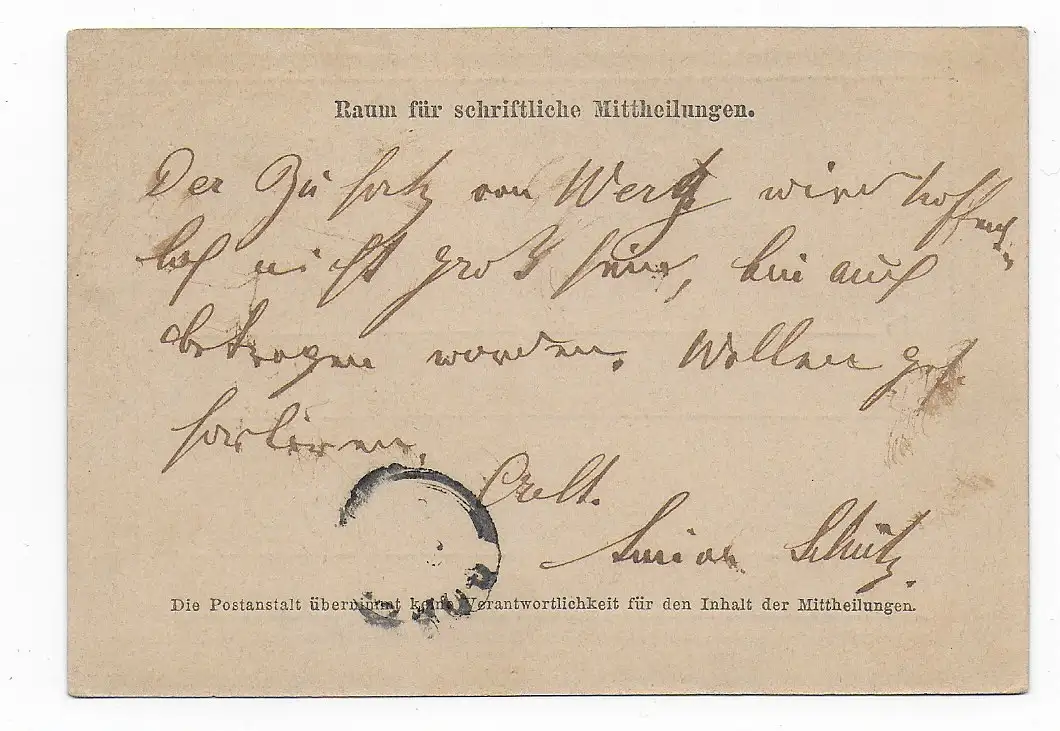 Raum für schriftliche Mittheilungen.
Der Zusatz von Werg wird hoffent-
lich nicht groß sein, bin auch
betrogen worden. Wollen gef.
sortiren.
Schütz.
Die Postanstalt übernimmt keine Verantwortlichkeit für den Inhalt der Mittheilungen.